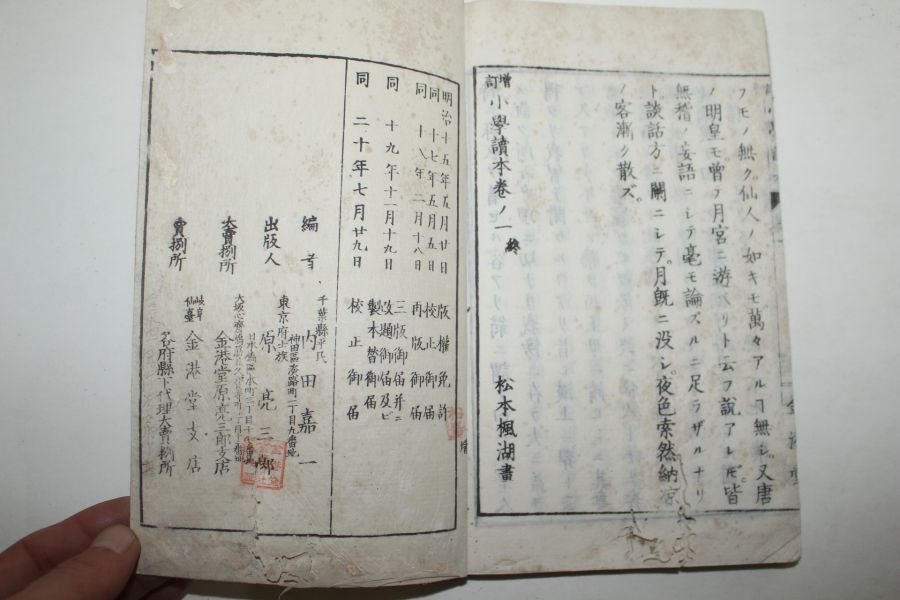 フモノ無ク仙人ノ如キモ萬々アルヿ無シ又唐
ノ明皇モ嘗テ月宮ニ遊ベリト云フ說アレ𪜈皆
無稽ノ妄語ニシテ毫モ論ズルニ足ラザルナリ
ト談話方ニ闌ニシテ月既ニ没シ夜色索然納凉
ノ客漸ク散ズ
增訂小學讀本卷ノ一 終
松本楓湖畫
明治十五年五月廿日 版權免許
同 十七年五月五日 校正御届
同 十八年二月十八日 再版御届
同 十九年十二月十九日 三版御届并ニ改題御届及ビ製本替御届
同 二十年七月廿九日 校正御届
編者 千葉縣平民 内田嘉一
神田區淡路町二丁目九番地
出版人 東京府士族 原亮三郎
日本橋區本町三丁目十七番地
大賣捌所 金港堂原亮三郎支店
賣捌所 岐阜 仙臺 金港堂支店
各府縣下代理大賣捌所